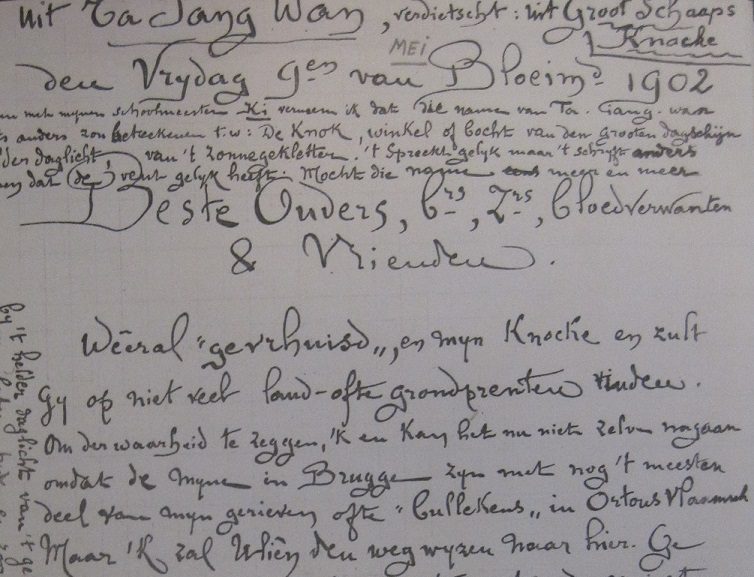 uit Ta Jang Wan, verdietscht: uit Groot Schaaps
Knocke
MEI
den Vrydag 9en van Bloeimd 1902
met mynen schoolmeester Ki verneem ik dat die name van Ta. Gang. wan
anders zou beteekenen t.w: De Knok, winkel of bocht van den grooten dagschijn
der daglicht, van 't zonnegekletter. 't Spreekt gelyk maar 't schryft anders
dat de vent gelyk heeft. Mocht die name meer en meer
Beste Ouders, brs, Zrs, bloedverwanten
& Vrienden.
Wêeral "gevrhuisd", en myn Knocke en zult
Gy op niet veel land-ofte grondprenten vinden.
Om der waarheid te zeggen, 'k en kan het nu niet zelve nagaan
omdat de myne in Brugge zyn met nog 't meesten
deel van myn gerieven ofte "bullekens" in Ortous Vlaamsch
Maar 'k zal Ulên den weg wyzen naar hier. Ge
by 't helder daglicht van 't ge